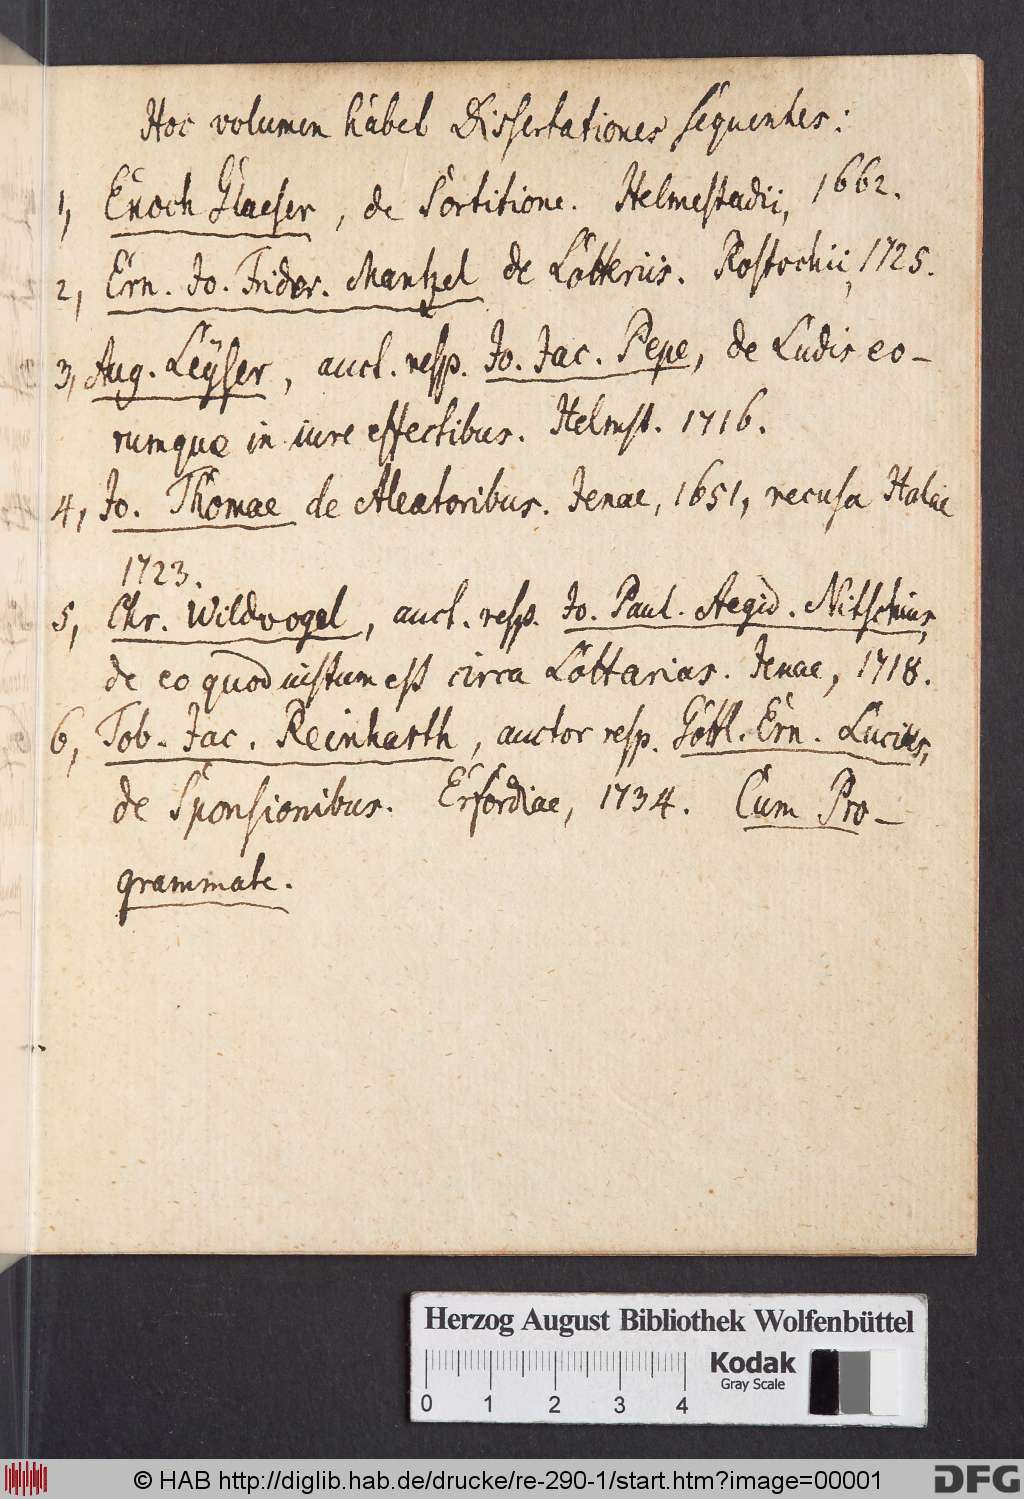 Hoc volumen habet Dissertationes sequentes:
1, Enoch Glaeser, de Sortitione. Helmestadii, 1662.
2, Ern. Jo. Frider. Mantzel de Lotteriis. Rostochii, 1725.
3, Aug. Leÿser, auct. resp. Jo. Jac. Pepe, de Ludis eo-
rumque in iure effectibus. Helmst. 1716.
4, Jo. Thomae de Aleatoribus. Jenae, 1651, recusa Halae
1723.
5, Chr. Wildvogel, auct. resp. Jo. Paul. Aegid. Nitschius,
de eo quod iustum est circa Lottarias. Jenae, 1718.
6, Tob. Jac. Reinharth, auctor resp. Gottl. Ern. Lucius,
de Sponsionibus. Erfordiae, 1734. Cum Pro-
grammate.
Herzog August Bibliothek Wolfenbüttel
0 1 2 3 4
Kodak
Gray Scale
© HAB http://diglib.hab.de/drucke/re-290-1/start.htm?image=00001
DFG